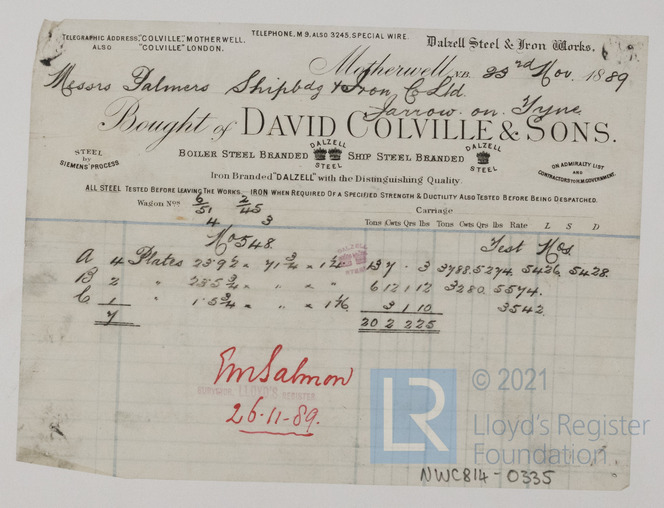 TELEGRAPHIC ADDRESS, "COLVILLE", MOTHERWELL.
ALSO "COLVILLE" LONDON.
TELEPHONE, M 9, ALSO 3245, SPECIAL WIRE.
Dalzell Steel & Iron Works.
Motherwell, N.B. 23rd Nov. 1889
Messrs Palmers Shipbdg & Iron Co Ltd.
Jarrow on Tyne
Bought of DAVID COLVILLE & SONS.
STEEL by SIEMENS' PROCESS.
BOILER STEEL BRANDED DALZELL STEEL SHIP STEEL BRANDED DALZELL STEEL
ON ADMIRALTY LIST AND CONTRACTORS TO H.M. GOVERNMENT.
Iron Branded "DALZELL" with the Distinguishing Quality.
ALL STEEL TESTED BEFORE LEAVING THE WORKS. IRON WHEN REQUIRED OF A SPECIFIED STRENGTH & DUCTILITY ALSO TESTED BEFORE BEING DESPATCHED.
Wagon Nos 6/51 2/45 Carriage
4 3
Tons Cwts Qrs lbs Tons Cwts Qrs lbs Rate L S D
No 548 Test Nos
DALZELL STEEL
A 4 Plates 23·9½ × 71¾ × 1¼ 13 7 · 3 3788. 5274. 5426. 5428.
B 2 " 23·5¾ " " " 6 12 1 12 3280. 5574.
C 1 " 1·5¾ " " × 1 1/16 3 1 10 3542
7 20 2 2 25
Em Salmon
SURVEYOR, LLOYD'S REGISTER.
26·11·89.
LR © 2021
Lloyd's Register
Foundation
NWC814-0335